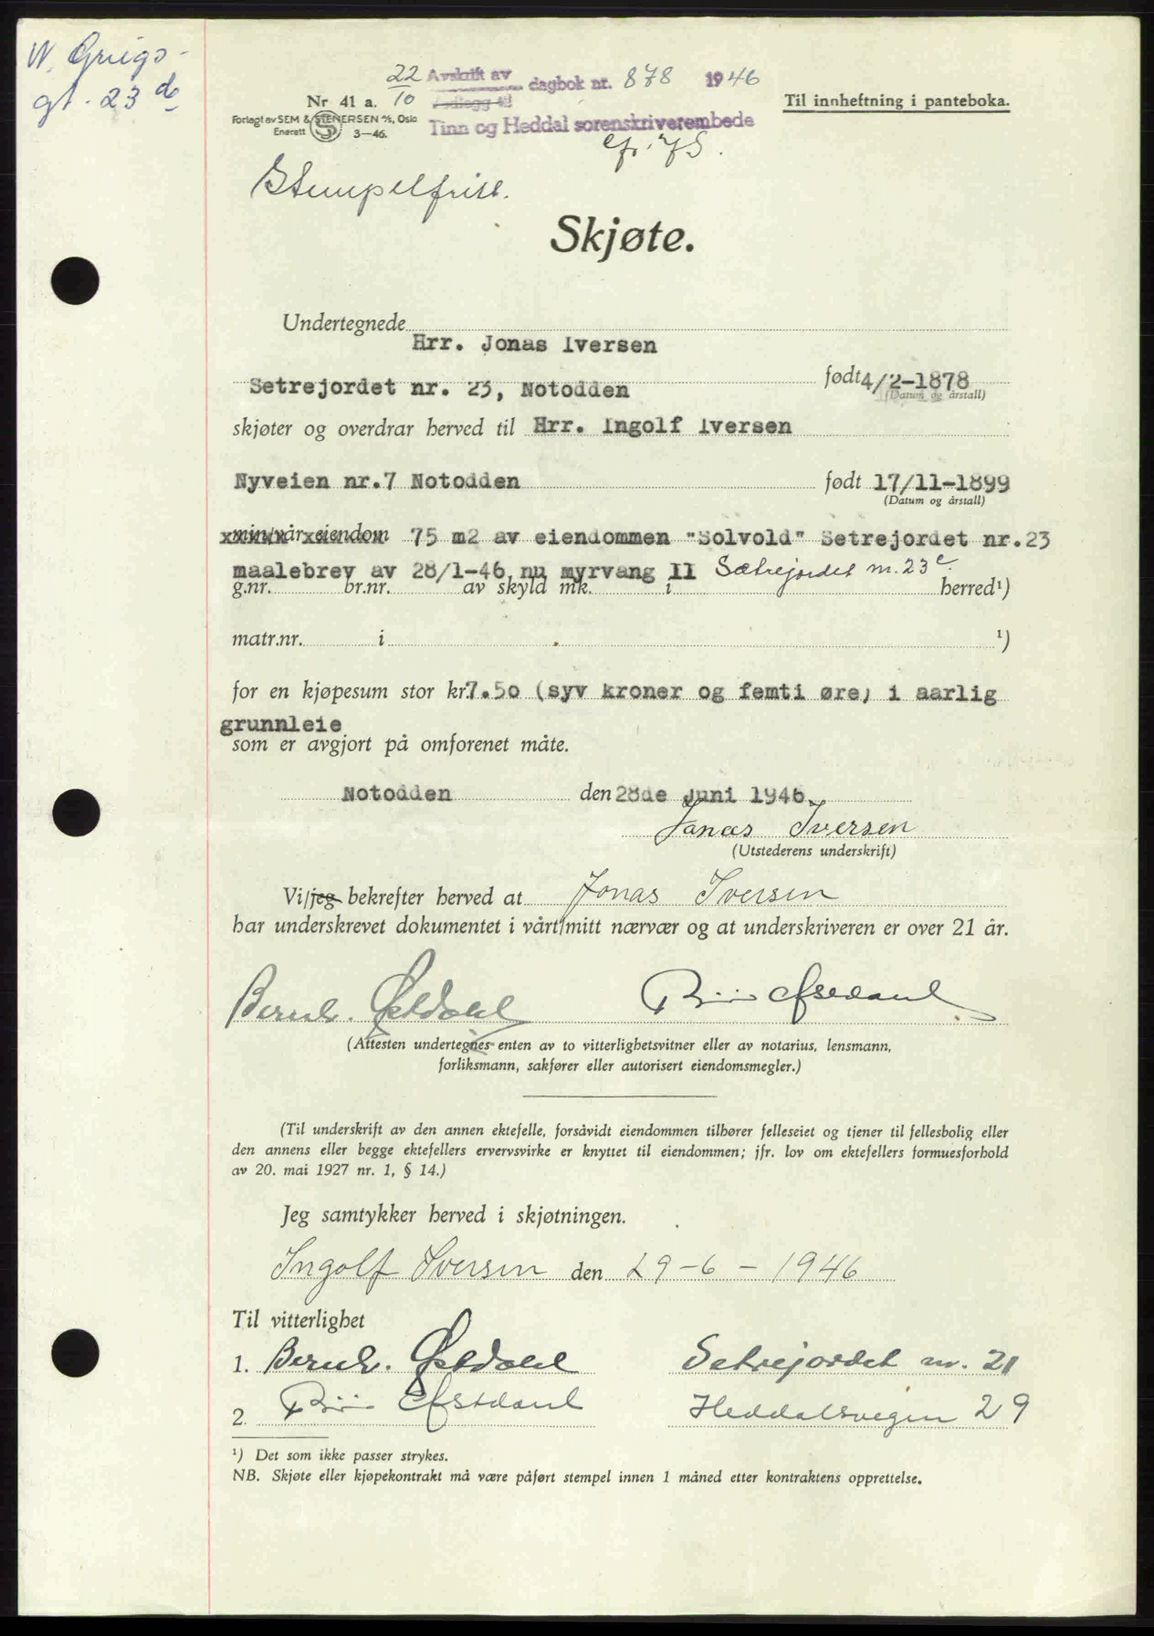 W. Griegs-
gt. 23 de
22/10 Avskrift av dagbok nr. 878 1946
Nr 41 a.
Til innheftning i panteboka.
Forlagt av SEM & STENERSEN A/S, Oslo
Enerett 3—46.
Tinn og Heddal sorenskriverembede
Stempelfritt.
Skjøte.
Undertegnede
Hrr. Jonas Iversen
Setrejordet nr. 23, Notodden født 4/2-1878
(Datum og årstall)
skjøter og overdrar herved til Hrr. Ingolf Iversen
Nyveien nr.7 Notodden født 17/11-1899
(Datum og årstall)
min/vår eiendom 75 m2 av eiendommen "Solvold" Setrejordet nr.23
maalebrev av 28/1-46 nu myrvang II Sætrejordet nr. 23 c.
g.nr. br.nr. av skyld mk. i herred¹)
matr.nr. i ¹)
for en kjøpesum stor kr. 7.50 (syv kroner og femti øre) i aarlig
grunnleie
som er avgjort på omforenet måte.
Notodden den 28de juni 1946.
Jonas Iversen
(Utstederens underskrift)
Vi/jeg bekrefter herved at Jonas Iversen
har underskrevet dokumentet i vårt/mitt nærvær og at underskriveren er over 21 år.
Bernh. Østdahl
(Attesten undertegnes enten av to vitterlighetsvitner eller av notarius, lensmann,
forliksmann, sakfører eller autorisert eiendomsmegler.)
(Til underskrift av den annen ektefelle, forsåvidt eiendommen tilhører felleseiet og tjener til fellesbolig eller
den annens eller begge ektefellers ervervsvirke er knyttet til eiendommen; jfr. lov om ektefellers formuesforhold
av 20. mai 1927 nr. 1, § 14.)
Jeg samtykker herved i skjøtningen.
Ingolf Iversen den 29-6-1946
Til vitterlighet
1. Bernh. Østdahl Setrejordet nr. 21
2. Heddalsvegen 29
¹) Det som ikke passer strykes.
NB. Skjøte eller kjøpekontrakt må være påført stempel innen 1 måned etter kontraktens opprettelse.